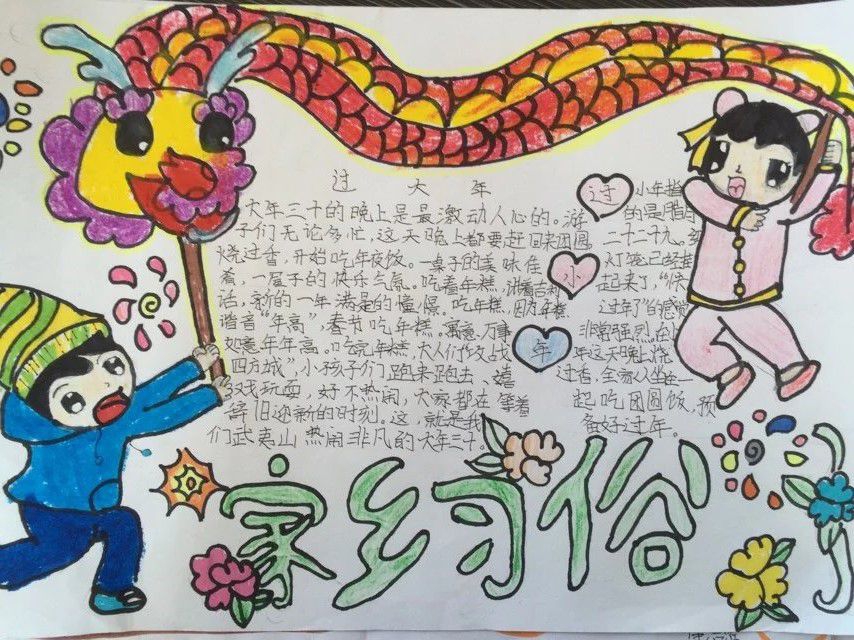 过 大 年
大年三十的晚上是最激动人心的。游
子们无论多忙，这天晚上都要赶回来团圆
烧过香，开始吃年夜饭。一桌子的美味佳
肴，一屋子的快乐气氛。吃着年糕，讲着吉利
话，新的一年满是的憧憬。吃年糕，因为年糕
谐音“年高”，春节吃年糕，寓意万事
如意年年高。吃完年糕，大人们
四方城”，小孩子们跑来跑去、嬉
戏玩耍，好不热闹，大家都在等着
辞旧迎新的时刻。这，就是我
们武夷山热闹非凡的大年三十。
过
小
年
小年指
的是腊月
二十二十九。
灯笼已经挂
起来了，“快
过年了”的感觉
非常强烈。在小
年这天晚上，烧
过香，全家人坐在一
起吃团圆饭，预
备好过年。
家乡习俗